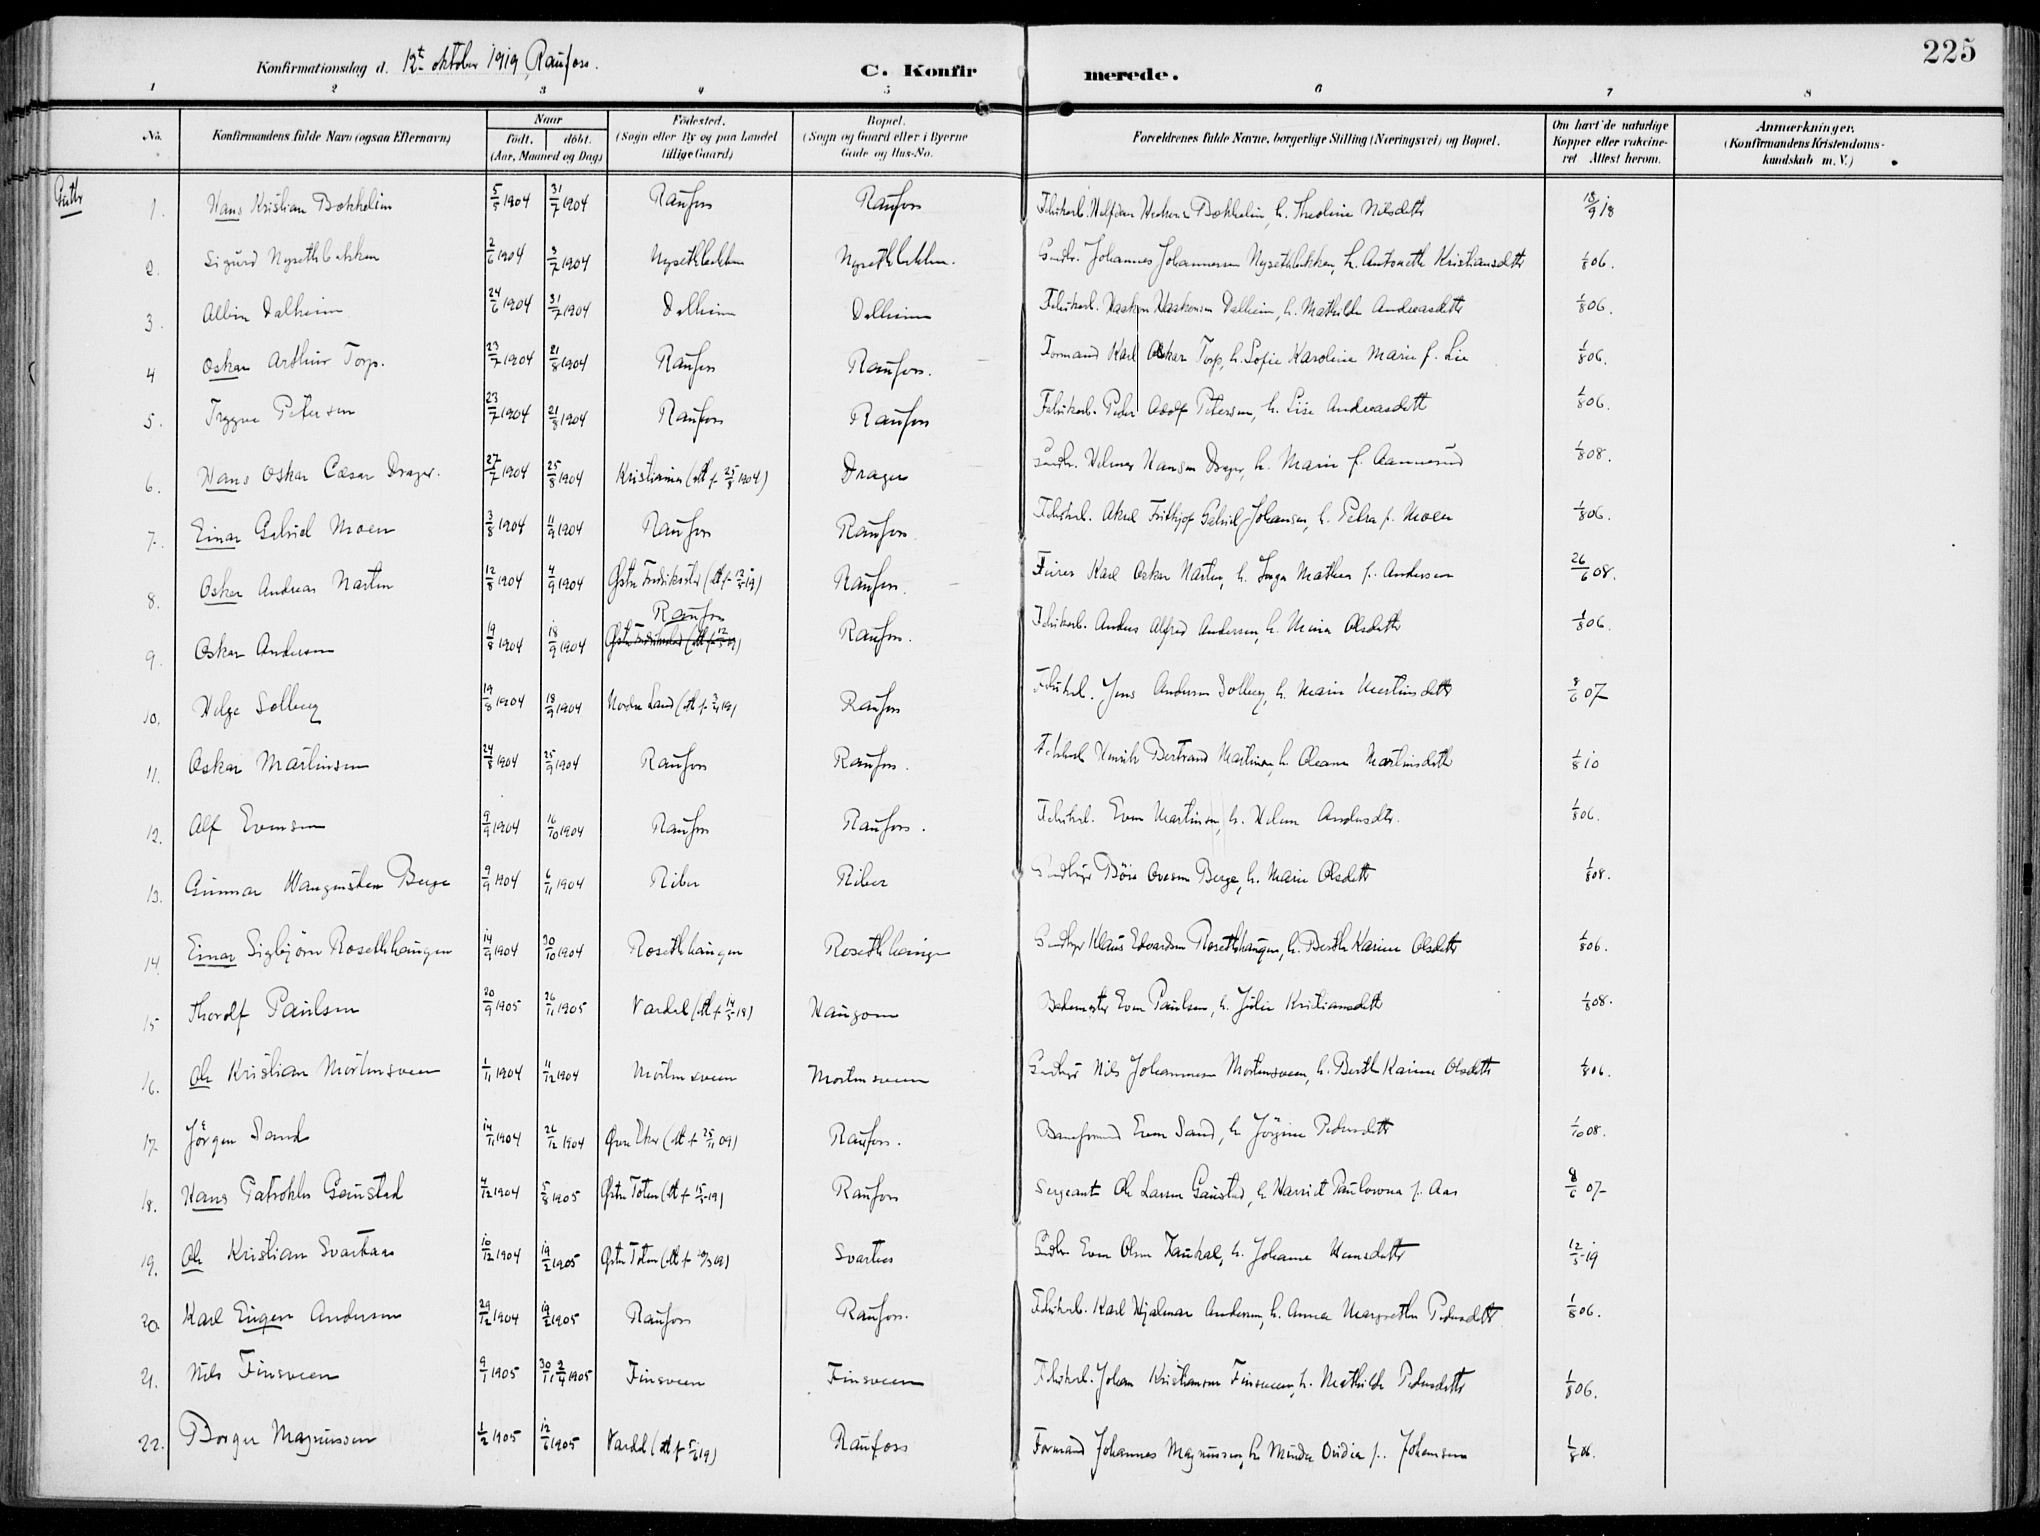 225
Konfirmationsdag d. 12t oktober 1919, Raufoss.
C. Konfir merede.
1 2 3 4 5 6 7 8
No. Konfirmandens fulde Navn (ogsaa Efternavn) Naar født. døbt. (Aar, Maaned og Dag) Fødested. (Sogn eller By og paa Landet tillige Gaard) Bopæl. (Sogn og Gaard eller i Byerne Gade og Hus-No. Forældrenes fulde Navne, borgerlige Stilling (Næringsvei) og Bopæl. Om havt de naturlige Kopper eller vakcineret Attest herom. Anmærkninger. (Konfirmandens Kristendomskundskab m. V.)
Gutter
1. Hans Kristian Bækkelin 5/5 1904 31/7 1904 Raufoss Raufoss Bækkelin, h. Theoline Nilsdatter 18/9 18
2. Sigurd Nysethbakken 2/6 1904 3/7 1904 Nysethbakken Nysethbakken. Johannes Johannesen Nysethbakken, h. Antonette Kristiansdttr 1/8 06.
3. Albin Dalheim 24/6 1904 31/7 1904 Dalheim Dalheim Fabrikarb. Haakon Haakonsen Dalheim, h. Mathilde Andreasdttr 1/8 06.
4 Oskar Arthur Torp. 23/7 1904 21/8 1904 Raufoss Raufoss. Formand Karl Oskar Torp, h. Sofie Karoline Marie f. Lie 1/8 06.
5. Trygve Petersen 23/7 1904 21/8 1904 Raufoss Raufoss Fabrikarb. Peder Adolf Petersen, h. Lise Andreasdatt 1/8 06.
6. Hans Oskar Cæsar Drager. 27/7 1904 25/8 1904 Kristiania (att f 25/8 1904) Drager Hilmar Hansen Drager, h. Marie f. Aannerud 1/8 08.
7. Einar Gabriel Moen 3/8 1904 11/9 1904 Raufoss Raufoss Fabrikarb. Aksel Frithjof Gabriel Johansen, h. Petra f. Moen 1/8 06.
8. Oskar Andreas Narten 12/8 1904 4/9 1904 Østre Fredrikstad (att f 12/5 19) Raufoss. Feirer Karl Oskar Narten, h. Inga Mathea f. Andersen 26/6 08.
9. Oskar Andersen 19/8 1904 18/9 1904 Raufoss Raufoss. Fabrikarb. Anders Alfred Andersen, h. Mina Olsdatter 1/8 06.
10. Helge Solberg 19/8 1904 18/9 1904 Nordre Land (att f 19) Raufoss Fabrikarb. Jens Andersen Solberg, h. Marie Martinsdattr 8/6 07
11. Oskar Martinsen 24/8 1904 25/9 1904 Raufoss Raufoss. Fabrikarb Henrik Bertrand Martinsen, h. Oleanna Martinsdatter 1/8 10
12. Alf Evensen 9/9 1904 16/10 1904 Raufoss Raufoss. Fabrikarb. Even Martinsen, h. Helene Andersdtr. 1/8 06.
13. Gunnar Wangensteen Berge 9/9 1904 6/11 1904 Riber Riber Børe Berge, h. Marie Olsdatt 1/8 08.
14. Einar Sigbjørn Rosethhaugen 14/9 1904 30/10 1904 Rosethhaugen Rosethhaugen Gaardbrgr Klaus Edvardsen Rosethhaugen, h. Berthe Karine Olsdatter 1/8 06.
15 Thorolf Paulsen 20/9 1905 26/11 1905 Vardal (att f 14/5 18) Haugom Even Paulsen, h. Julie Kristiansdatt 1/8 08.
16. Ole Kristian Mortensveen 1/11 1904 11/12 1904 Mortensveen Mortensveen Gaardbrgr Nils Johannesen Mortensveen, h. Berthe Karine Olsdattr 1/8 06.
17. Jørgen Sand 14/11 1904 26/12 1904 Øvre Eker (att f 25/11 09) Raufoss. Baneformand Even Sand, h. Jørgine Pedersdattr 1/10 08.
18. Hans Patroklus Gaustad 4/12 1904 5/8 1905 Østre Toten (att f 15/5 19) Raufoss Sergeant Ole Larsen Gaustad, h. Harriet Paulowna f. Aas 8/6 07
19. Ole Kristian Svartaas 10/12 1904 19/2 1905 Østre Toten (att f 10/3 09) Svartaas Even Olsen Taukal, h. Johanne Hansdatter 12/5 19
20. Karl Eugen Andersen 29/12 1904 19/2 1905 Raufoss Raufoss. Fabrikarb. Karl Hjalmar Andersen, h. Anna Margrethe Pedersdatt 1/8 06.
21. Nils Finsveen 9/1 1905 30/11 2/4 1905 Finsveen Finsveen Fabrikarb. Johan Kristiansen Finsveen, h. Mathilde Pedersdatter 1/8 06.
22. Borger Magnussen 1/2 1905 12/6 1905 Vardal (att f 5/6 19) Raufoss Formand Johannes Magnussen, h. Minda Ovidia f. Johansen 1/8 06.